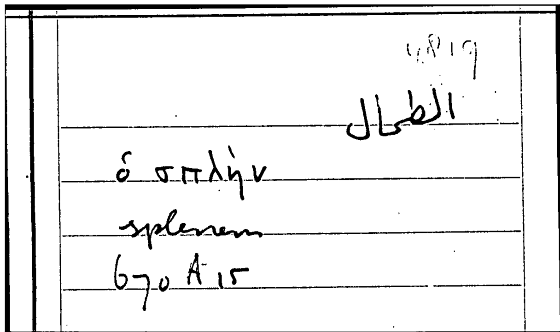 4819
الطحال
ὁ σπλήν
splenem
670 A 15